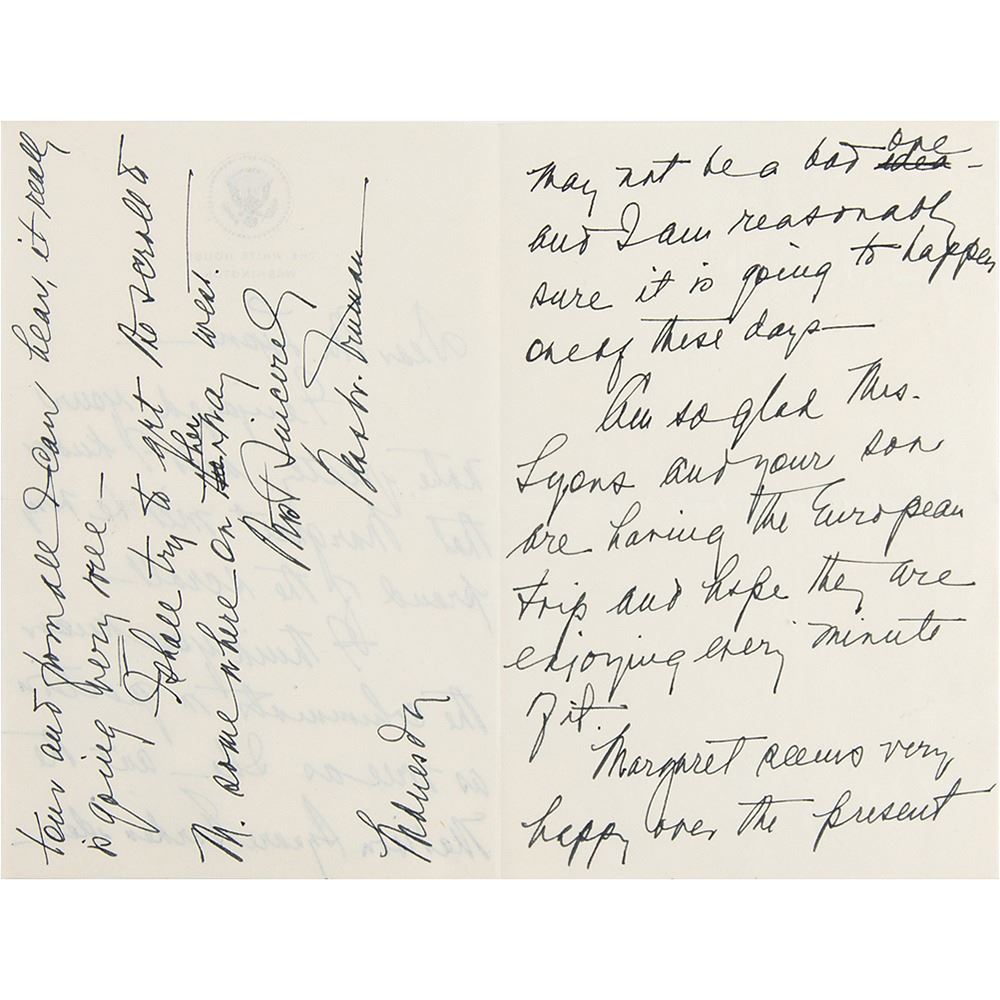 may not be a bad idea one -
and I am reasonably
sure it is going to happen
one of these days —
Am so glad Mrs.
Lyons and your son
are having the European
trip and hope they are
enjoying every minute
of it.
Margaret seems very
happy over the present
tour and from all I can hear, it really
is going very well —
I shall try to get the scroll to
M. some where on her way west.
Most Sincerely
Bess W. Truman
Wednesday
THE WHITE HOUSE
WASHINGTON